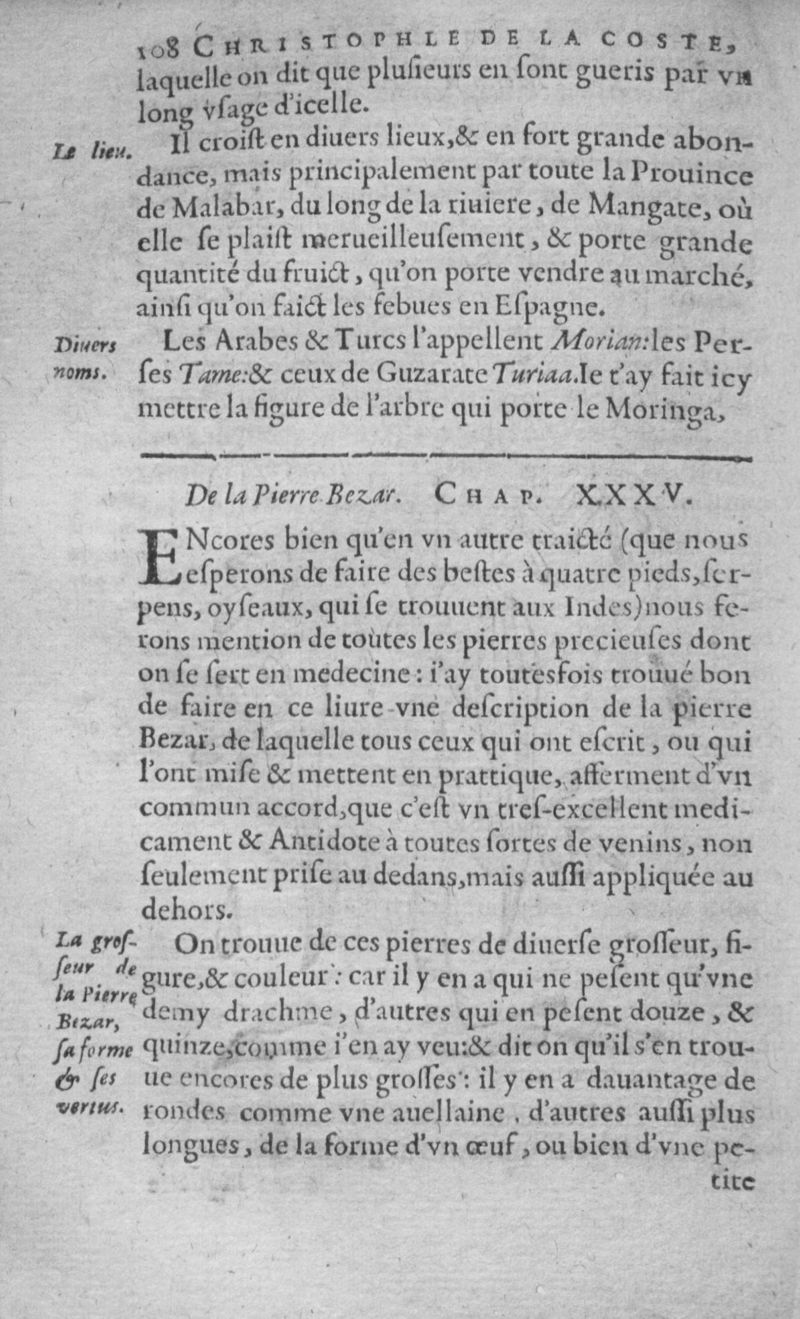 108 CHRISTOPHLE DE LA COSTE,
laquelle on dit que pluſieurs en ſont gueris par vn
long vſage d'icelle.
Le lieu.
Il croiſt en diuers lieux,& en fort grande abon-
dance, mais principalement par toute la Prouince
de Malabar, du long de la riuiere, de Mangate, où
elle ſe plaiſt merueilleuſement, & porte grande
quantité du fruict, qu'on porte vendre au marché,
ainſi qu'on faict les febues en Eſpagne.
Diuers
noms.
Les Arabes & Turcs l'appellent Morian:les Per-
ſes Tame:& ceux de Guzarate Turiaa.Ie t'ay fait icy
mettre la figure de l'arbre qui porte le Moringa,
De la Pierre Bezar. CHAP. XXXV.
ENcores bien qu'en vn autre traicté (que nous
eſperons de faire des beſtes à quatre pieds,ſer-
pens, oyſeaux, qui ſe trouuent aux Indes)nous fe-
rons mention de toutes les pierres precieuſes dont
on ſe ſert en medecine : i'ay toutesfois trouué bon
de faire en ce liure vne deſcription de la pierre
Bezar, de laquelle tous ceux qui ont eſcrit, ou qui
l'ont miſe & mettent en prattique, afferment d'vn
commun accord,que c'eſt vn treſ-excellent medi-
cament & Antidote à toutes ſortes de venins, non
ſeulement priſe au dedans,mais auſſi appliquée au
dehors.
La groſ-
ſeur de
la Pierre
Bezar,
ſa forme
& ſes
vertus.
On trouue de ces pierres de diuerſe groſſeur, fi-
gure,& couleur : car il y en a qui ne peſent qu'vne
demy drachme, d'autres qui en peſent douze, &
quinze,comme i'en ay veu:& dit on qu'il s'en trou-
ue encores de plus groſſes : il y en a dauantage de
rondes comme vne auellaine, d'autres auſſi plus
longues, de la forme d'vn œuf, ou bien d'vne pe-
tite